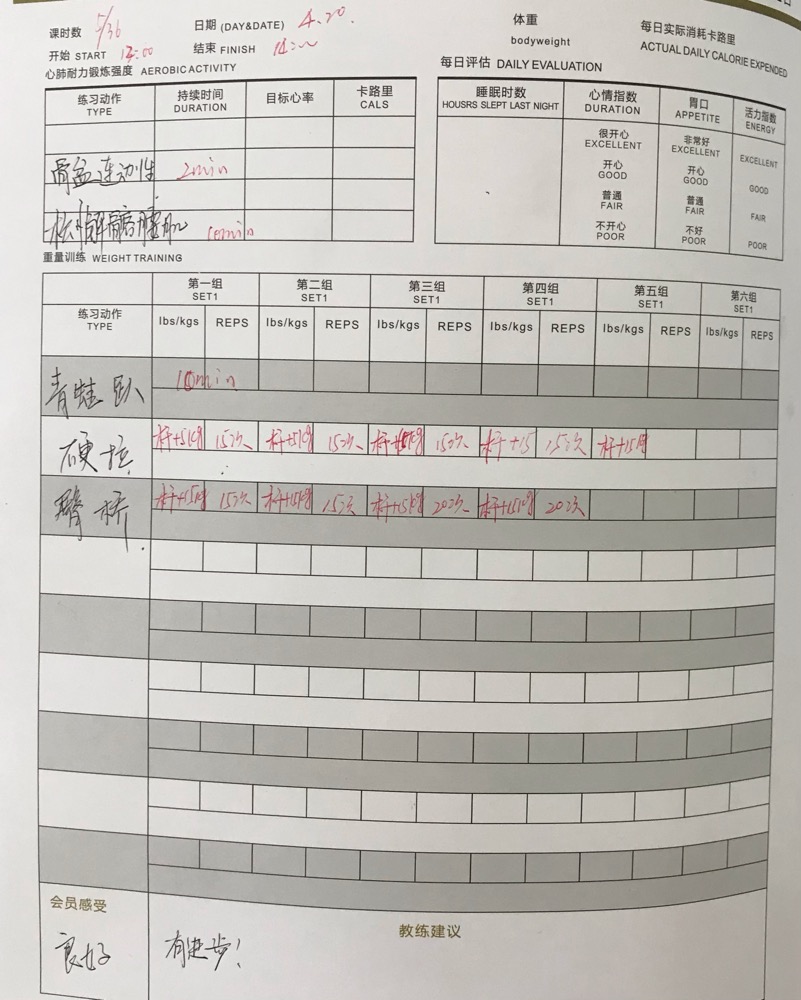 课时数 5/36 日期 (DAY&DATE) 4.20. 体重 每日实际消耗卡路里
开始 START 13:00 结束 FINISH 14:00 bodyweight ACTUAL DAILY CALORIE EXPENDED
心肺耐力锻炼强度 AEROBIC ACTIVITY 每日评估 DAILY EVALUATION
练习动作 持续时间 目标心率 卡路里
TYPE DURATION CALS
骨盆连动性 2min
松解髂腰肌 10min
睡眠时数 心情指数 胃口 活力指数
HOUSRS SLEPT LAST NIGHT DURATION APPETITE ENERGY
很开心 非常好
EXCELLENT EXCELLENT EXCELLENT
开心 开心
GOOD GOOD GOOD
普通 普通
FAIR FAIR FAIR
不开心 不好
POOR POOR POOR
重量训练 WEIGHT TRAINING
练习动作 第一组 第二组 第三组 第四组 第五组 第六组
TYPE SET1 SET1 SET1 SET1 SET1 SET1
lbs/kgs REPS lbs/kgs REPS lbs/kgs REPS lbs/kgs REPS lbs/kgs REPS lbs/kgs REPS
青蛙趴 10min
硬拉 杆+5kg 15次 杆+5kg 15次 15次 杆+15 15次 杆+15kg
臀桥 杆+15kg 15次 杆+15kg 15次 杆+15kg 20次 杆+15kg 20次
会员感受 教练建议
良好 有进步!